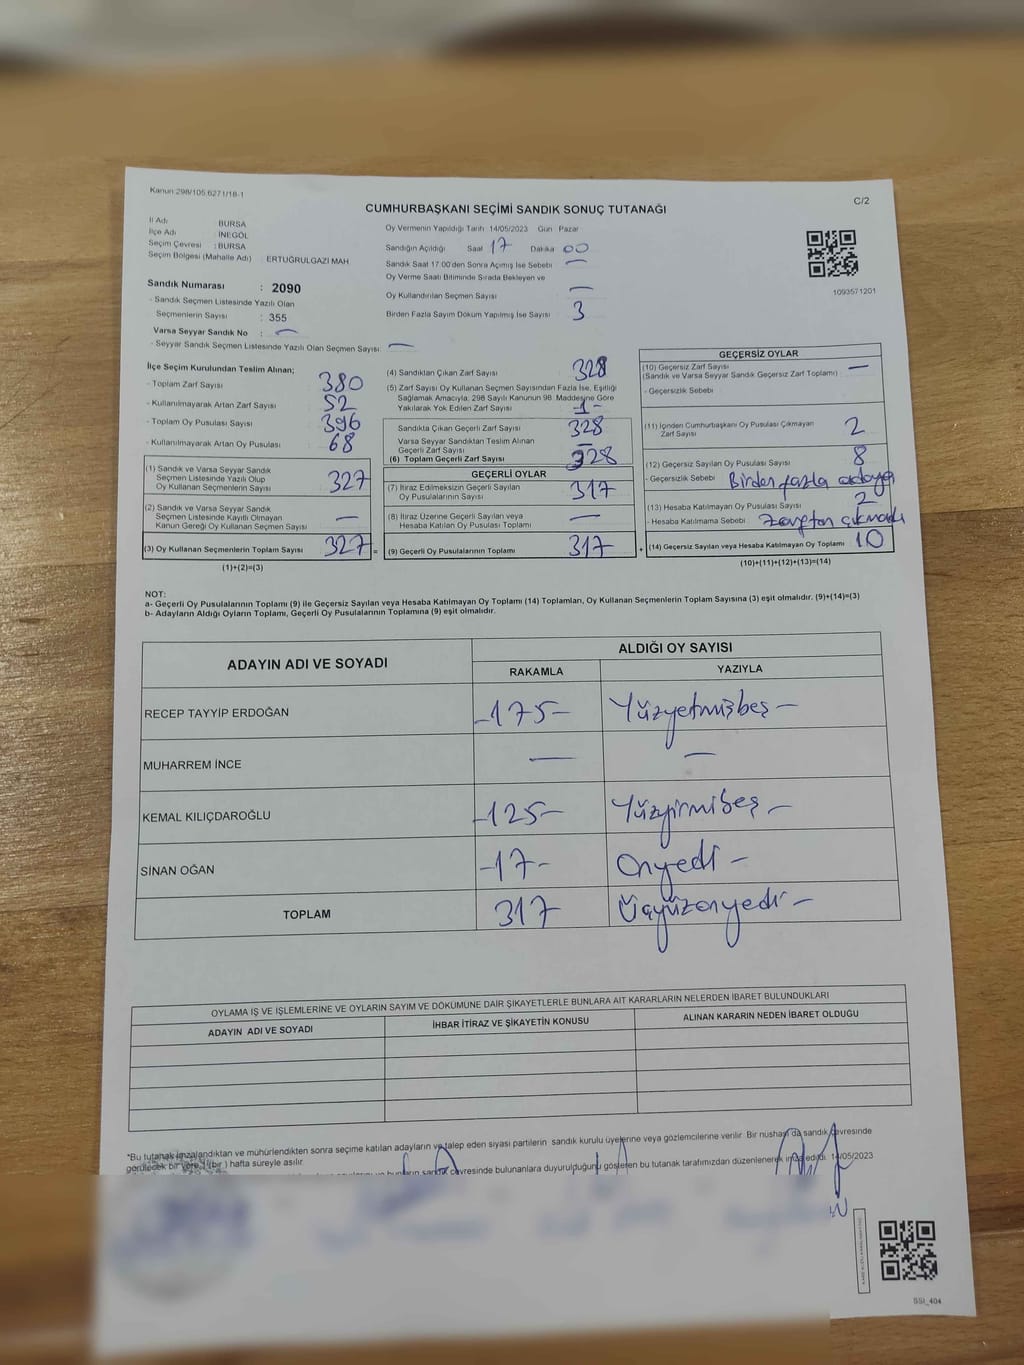 Kanun 298/105 6271/18-1
C/2
CUMHURBAŞKANI SEÇİMİ SANDIK SONUÇ TUTANAĞI
İl Adı : BURSA
İlçe Adı : İNEGÖL
Seçim Çevresi : BURSA
Seçim Bölgesi (Mahalle Adı) : ERTUĞRULGAZİ MAH.
Oy Vermenin Yapıldığı Tarih 14/05/2023 Gün Pazar
Sandığın Açıldığı Saat 17 Dakika 00
Sandık Saat 17.00'den Sonra Açımış İse Sebebi —
Oy Verme Saati Bitiminde Sırada Bekleyen ve
Oy Kullandırılan Seçmen Sayısı —
Birden Fazla Sayım Döküm Yapılmış İse Sayısı 3
1093571201
Sandık Numarası : 2090
- Sandık Seçmen Listesinde Yazılı Olan
Seçmenlerin Sayısı : 355
Varsa Seyyar Sandık No : —
- Seyyar Sandık Seçmen Listesinde Yazılı Olan Seçmen Sayısı: —
İlçe Seçim Kurulundan Teslim Alınan;
- Toplam Zarf Sayısı 380
- Kullanılmayarak Artan Zarf Sayısı 52
- Toplam Oy Pusulası Sayısı 396
- Kullanılmayarak Artan Oy Pusulası 68
(1) Sandık ve Varsa Seyyar Sandık
Seçmen Listesinde Yazılı Olup
Oy Kullanan Seçmenlerin Sayısı 327
(2) Sandık ve Varsa Seyyar Sandık
Seçmen Listesinde Kayıtlı Olmayan
Kanun Gereği Oy Kullanan Seçmen Sayısı —
(3) Oy Kullanan Seçmenlerin Toplam Sayısı 327 =
(1)+(2)=(3)
(4) Sandıktan Çıkan Zarf Sayısı 328
(5) Zarf Sayısı Oy Kullanan Seçmen Sayısından Fazla İse, Eşitliği
Sağlamak Amacıyla, 298 Sayılı Kanunun 98. Maddesine Göre
Yakılarak Yok Edilen Zarf Sayısı -1-
Sandıkta Çıkan Geçerli Zarf Sayısı 328
Varsa Seyyar Sandıktan Teslim Alınan
Geçerli Zarf Sayısı —
(6) Toplam Geçerli Zarf Sayısı 328
GEÇERLİ OYLAR
(7) İtiraz Edilmeksizin Geçerli Sayılan
Oy Pusulalarının Sayısı 317
(8) İtiraz Üzerine Geçerli Sayılan veya
Hesaba Katılan Oy Pusulası Toplamı —
(9) Geçerli Oy Pusulalarının Toplamı 317 +
GEÇERSİZ OYLAR
(10) Geçersiz Zarf Sayısı
(Sandık ve Varsa Seyyar Sandık Geçersiz Zarf Toplamı) —
- Geçersizlik Sebebi
(11) İçinden Cumhurbaşkanı Oy Pusulası Çıkmayan
Zarf Sayısı 2
(12) Geçersiz Sayılan Oy Pusulası Sayısı 8
- Geçersizlik Sebebi Birden fazla adaya
(13) Hesaba Katılmayan Oy Pusulası Sayısı 2
- Hesaba Katılmama Sebebi zarftan çıkmadı
(14) Geçersiz Sayılan veya Hesaba Katılmayan Oy Toplamı 10
(10)+(11)+(12)+(13)=(14)
NOT:
a- Geçerli Oy Pusulalarının Toplamı (9) ile Geçersiz Sayılan veya Hesaba Katılmayan Oy Toplamı (14) Toplamları, Oy Kullanan Seçmenlerin Toplam Sayısına (3) eşit olmalıdır. (9)+(14)=(3)
b- Adayların Aldığı Oyların Toplamı, Geçerli Oy Pusulalarının Toplamına (9) eşit olmalıdır.
ADAYIN ADI VE SOYADI
ALDIĞI OY SAYISI
RAKAMLA YAZIYLA
RECEP TAYYİP ERDOĞAN -175- Yüzyetmişbeş —
MUHARREM İNCE — —
KEMAL KILIÇDAROĞLU -125- Yüzyirmibeş —
SİNAN OĞAN -17- Onyedi —
TOPLAM 317 Üçyüzonyedi —
OYLAMA İŞ VE İŞLEMLERİNE VE OYLARIN SAYIM VE DÖKÜMÜNE DAİR ŞİKAYETLERLE BUNLARA AİT KARARLARIN NELERDEN İBARET BULUNDUKLARI
ADAYIN ADI VE SOYADI İHBAR İTİRAZ VE ŞİKAYETİN KONUSU ALINAN KARARIN NEDEN İBARET OLDUĞU
*Bu tutanak imzalandıktan ve mühürlendikten sonra seçime katılan adayların ve talep eden siyasi partilerin sandık kurulu üyelerine veya gözlemcilerine verilir. Bir nüshası da sandık çevresinde
görülecek bir yere 1 (bir) hafta süreyle asılır.
sandık çevresinde bulunanlara duyurulduğunu gösteren bu tutanak tarafımızdan düzenlenerek imza edildi. 14/05/2023
SSI_404